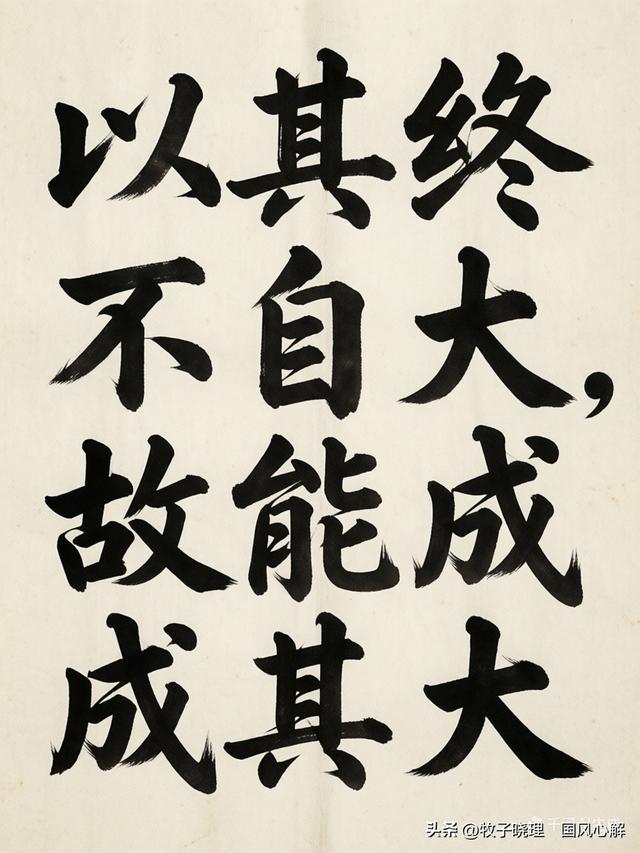 以其终
不自大，
故能成
成其大
头条 @牧子晓理 国风心解